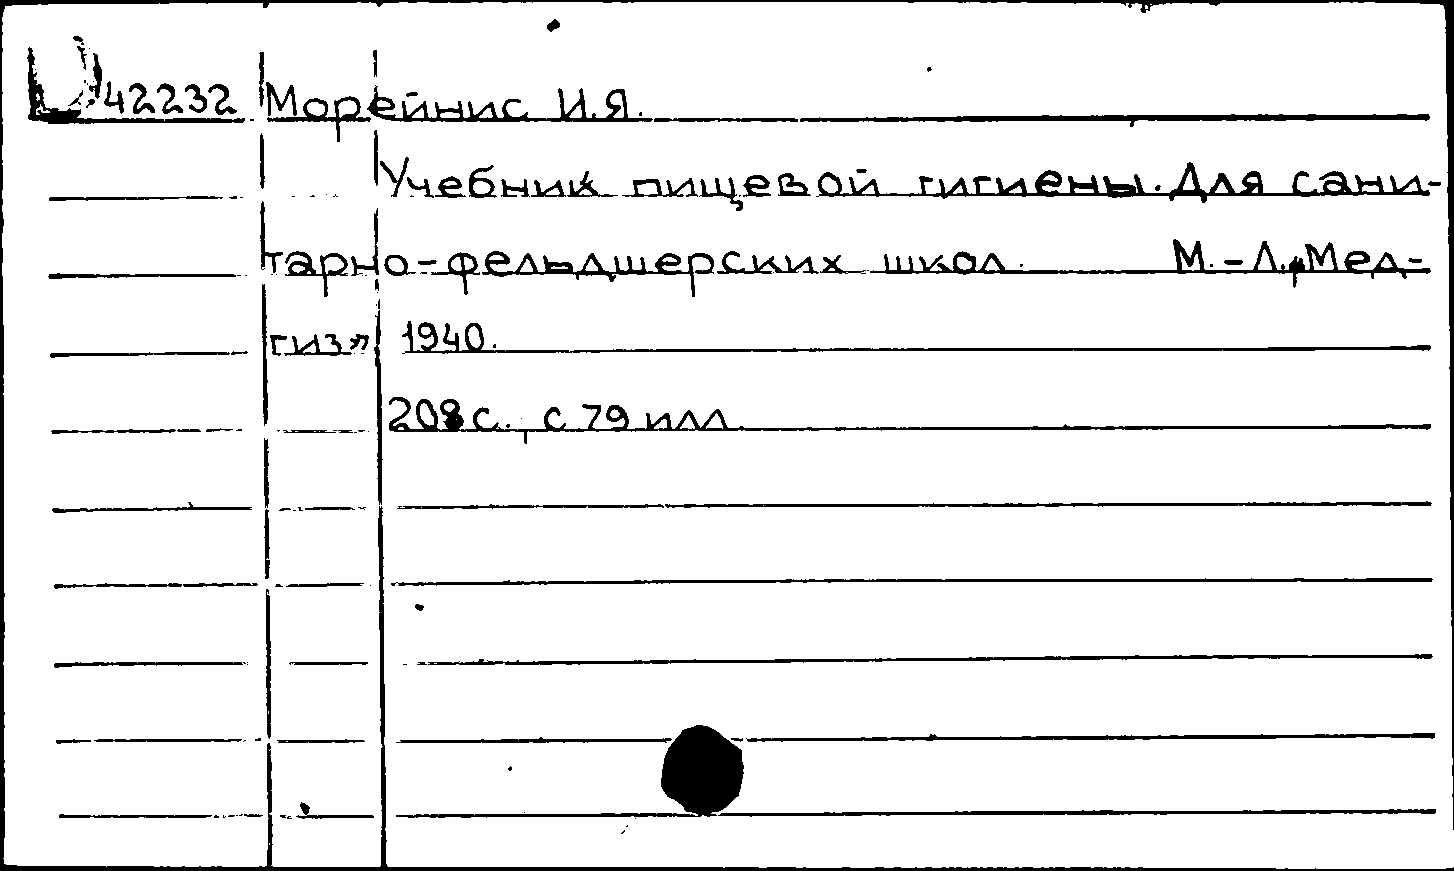 42232 Морейнис И.Я.
Учебник пищевой гигиены. Для сани-
тарно-фельдшерских школ. М.-Л., „Мед-
гиз” 1940.
208 с., с 79 илл.